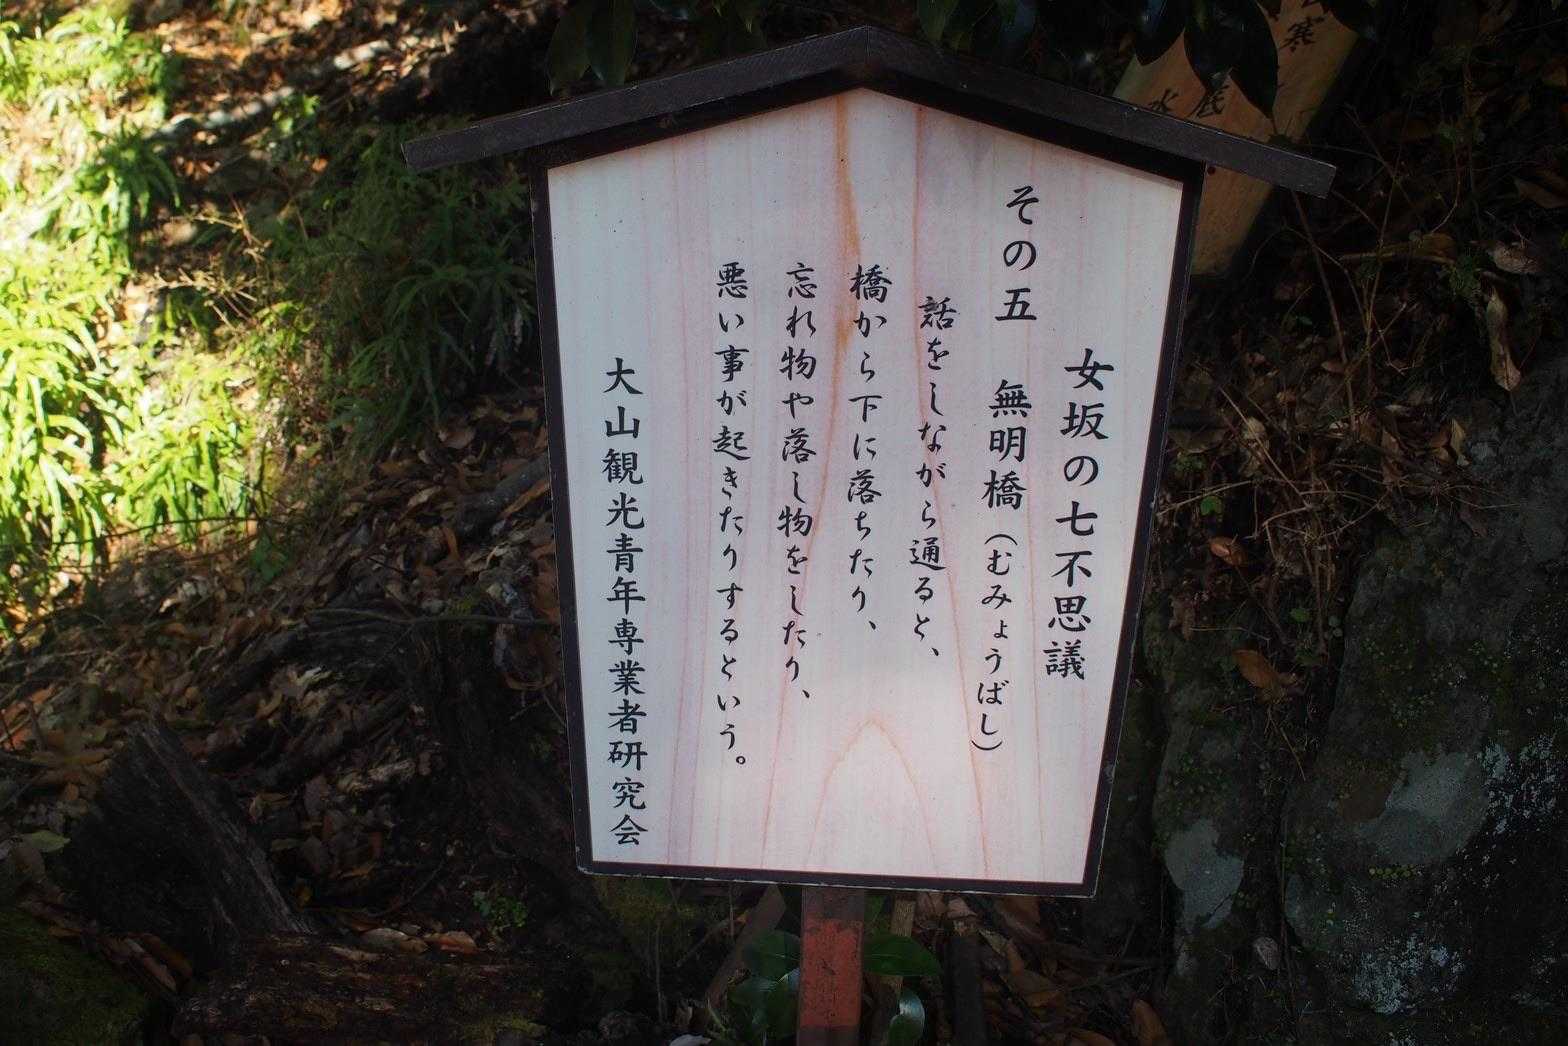 女坂の七不思議
その五 無明橋（むみょうばし）
話をしながら通ると、
橋から下に落ちたり、
忘れ物や落し物をしたり、
悪い事が起きたりするという。
大山観光青年専業者研究会